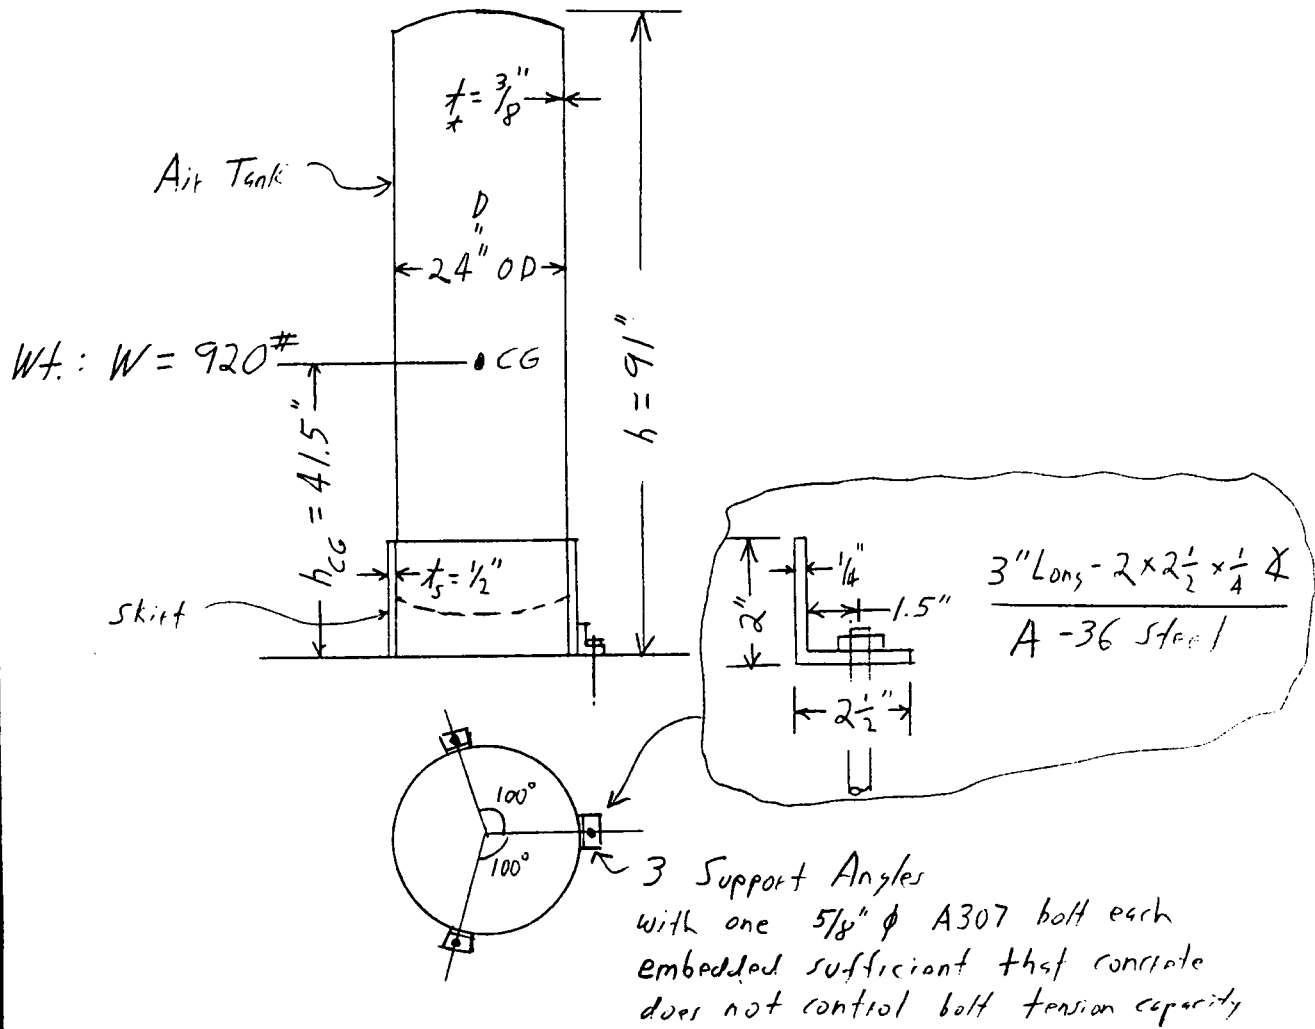 t_t = 3/8"
Air Tank
D
"
24" OD
Wt.: W = 920#
CG
h_CG = 41.5"
h = 91"
t_s = 1/2"
Skirt
1/4"
2"
1.5"
2 1/2"
3" Long - 2 x 2 1/2 x 1/4 ∡
A-36 Steel
100°
100°
3 Support Angles
with one 5/8" φ A307 bolt each
embedded sufficient that concrete
does not control bolt tension capacity